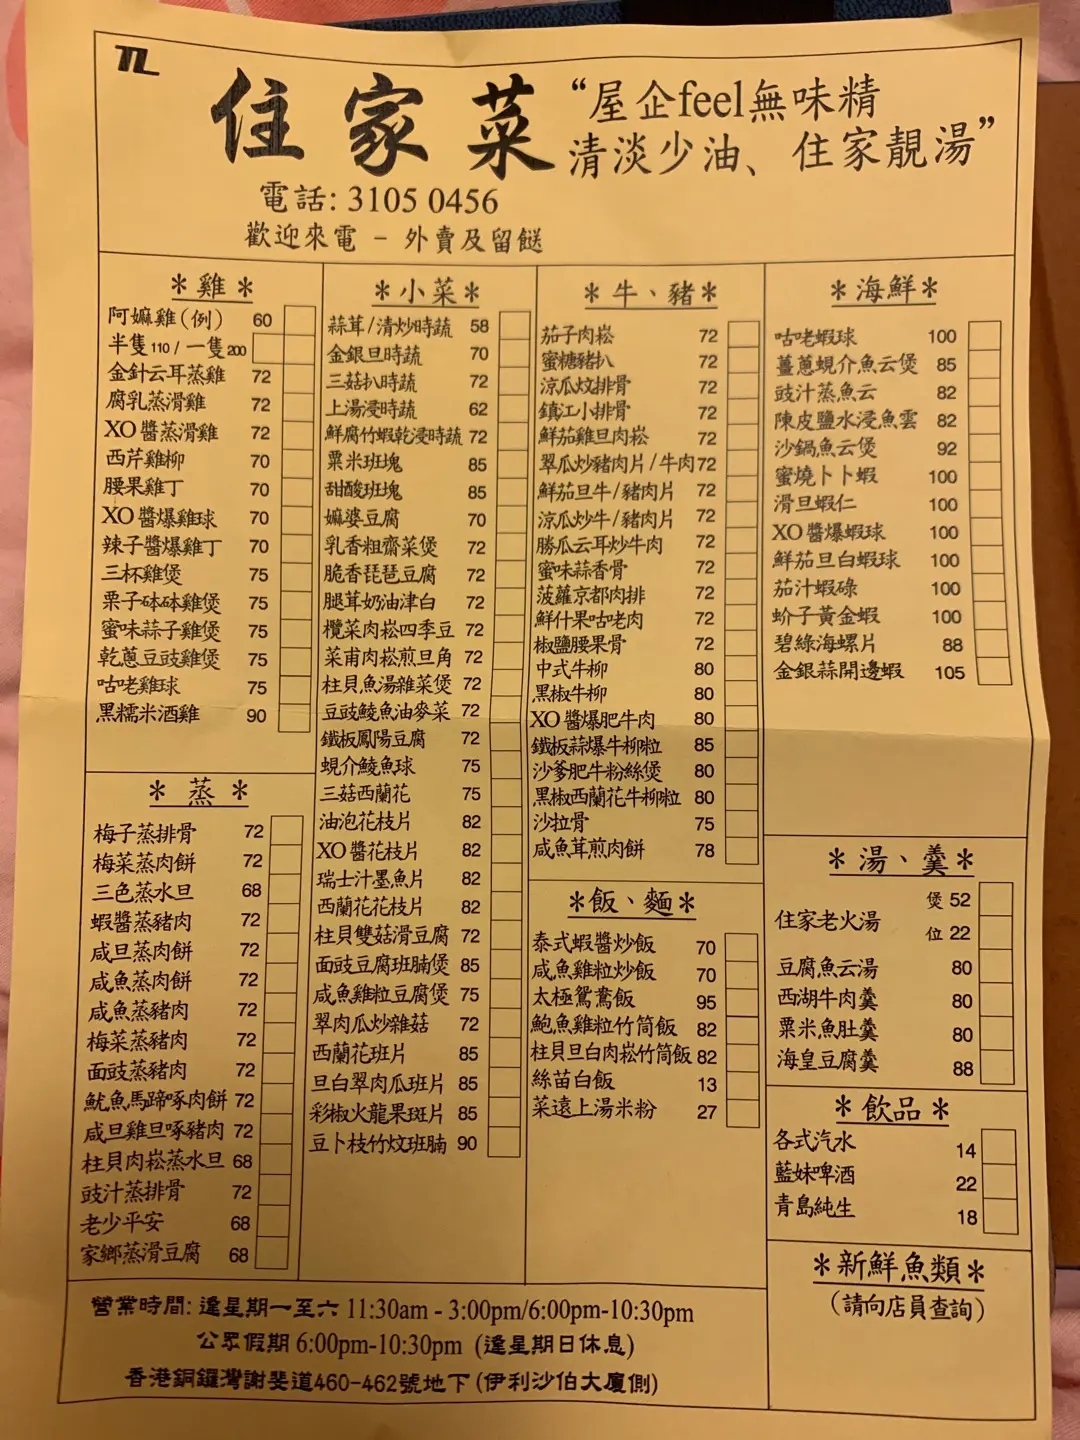 TL
住家菜
“屋企feel無味精
清淡少油、住家靚湯”
電話: 3105 0456
歡迎來電 - 外賣及留餸
＊雞＊
阿嫲雞(例) 60
半隻110 / 一隻200
金針云耳蒸雞 72
腐乳蒸滑雞 72
XO醬蒸滑雞 72
西芹雞柳 70
腰果雞丁 70
XO醬爆雞球 70
辣子醬爆雞丁 70
三杯雞煲 75
栗子砵砵雞煲 75
蜜味蒜子雞煲 75
乾蔥豆豉雞煲 75
咕咾雞球 75
黑糯米酒雞 90
＊蒸＊
梅子蒸排骨 72
梅菜蒸肉餅 72
三色蒸水旦 68
蝦醬蒸豬肉 72
咸旦蒸肉餅 72
咸魚蒸肉餅 72
咸魚蒸豬肉 72
梅菜蒸豬肉 72
面豉蒸豬肉 72
魷魚馬蹄啄肉餅 72
咸旦雞旦啄豬肉 72
柱貝肉崧蒸水旦 68
豉汁蒸排骨 72
老少平安 68
家鄉蒸滑豆腐 68
＊小菜＊
蒜茸/清炒時蔬 58
金銀旦時蔬 70
三菇扒時蔬 72
上湯浸時蔬 62
鮮腐竹蝦乾浸時蔬 72
粟米班塊 85
甜酸班塊 85
嫲婆豆腐 70
乳香粗齋菜煲 72
脆香琵琶豆腐 72
腿茸奶油津白 72
欖菜肉崧四季豆 72
菜甫肉崧煎旦角 72
柱貝魚湯雜菜煲 72
豆豉鯪魚油麥菜 72
鐵板鳳陽豆腐 72
蜆介鯪魚球 75
三菇西蘭花 75
油泡花枝片 82
XO醬花枝片 82
瑞士汁墨魚片 82
西蘭花花枝片 82
柱貝雙菇滑豆腐 72
面豉豆腐班腩煲 85
咸魚雞粒豆腐煲 75
翠肉瓜炒雜菇 72
西蘭花班片 85
旦白翠肉瓜班片 85
彩椒火龍果班片 85
豆卜枝竹炆班腩 90
＊牛、豬＊
茄子肉崧 72
蜜糖豬扒 72
涼瓜炆排骨 72
鎮江小排骨 72
鮮茄雞旦肉崧 72
翠瓜炒豬肉片/牛肉 72
鮮茄旦牛/豬肉片 72
涼瓜炒牛/豬肉片 72
勝瓜云耳炒牛肉 72
蜜味蒜香骨 72
菠蘿京都肉排 72
鮮什果咕咾肉 72
椒鹽腰果骨 72
中式牛柳 80
黑椒牛柳 80
XO醬爆肥牛肉 80
鐵板蒜爆牛柳粒 85
沙爹肥牛粉絲煲 80
黑椒西蘭花牛柳粒 80
沙拉骨 75
咸魚茸煎肉餅 78
＊飯、麵＊
泰式蝦醬炒飯 70
咸魚雞粒炒飯 70
太極鴛鴦飯 95
鮑魚雞粒竹筒飯 82
柱貝旦白肉崧竹筒飯 82
絲苗白飯 13
菜遠上湯米粉 27
＊海鮮＊
咕咾蝦球 100
薑蔥蜆介魚云煲 85
豉汁蒸魚云 82
陳皮鹽水浸魚雲 82
沙鍋魚云煲 92
蜜燒卜卜蝦 100
滑旦蝦仁 100
XO醬爆蝦球 100
鮮茄旦白蝦球 100
茄汁蝦碌 100
蚧子黃金蝦 100
碧綠海螺片 88
金銀蒜開邊蝦 105
＊湯、羹＊
煲 52
住家老火湯
位 22
豆腐魚云湯 80
西湖牛肉羹 80
粟米魚肚羹 80
海皇豆腐羹 88
＊飲品＊
各式汽水 14
藍妹啤酒 22
青島純生 18
＊新鮮魚類＊
(請向店員查詢)
營業時間: 逢星期一至六 11:30am - 3:00pm/6:00pm-10:30pm
公眾假期 6:00pm-10:30pm (逢星期日休息)
香港銅鑼灣謝斐道460-462號地下 (伊利沙伯大廈側)